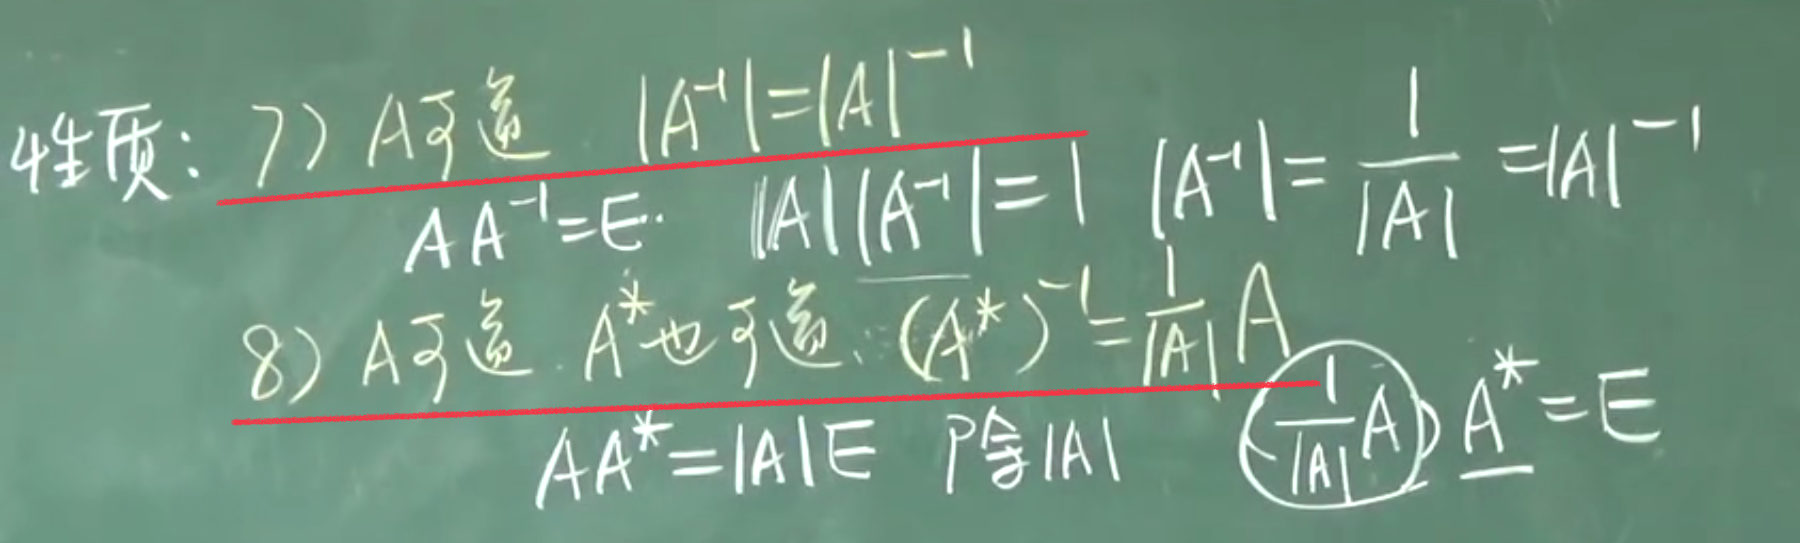 性质: 7) A可逆 |A⁻¹|=|A|⁻¹
AA⁻¹=E. |A||A⁻¹|=1 |A⁻¹|=1/|A|=|A|⁻¹
8) A可逆. A*也可逆、(A*)⁻¹=1/|A| A
AA*=|A|E 除|A| (1/|A| A)A*=E